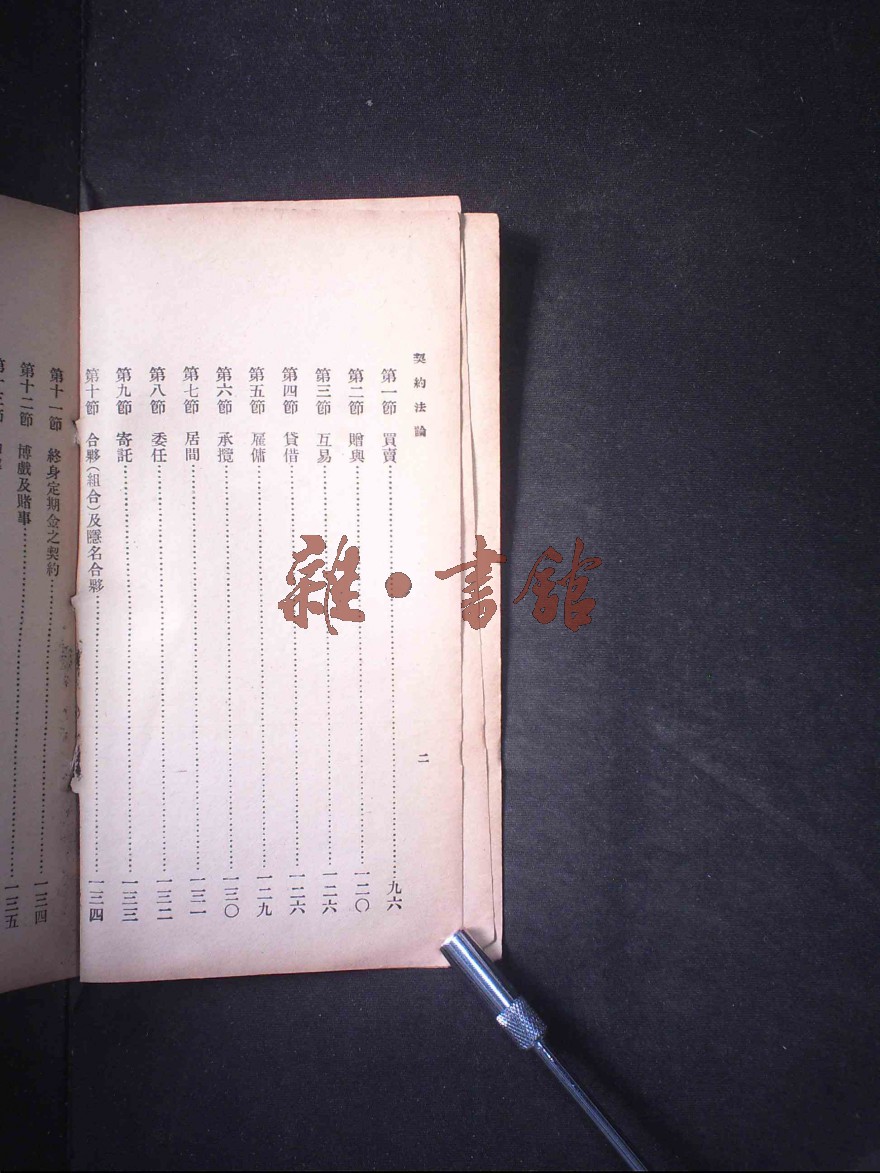 契約法論
二
第一節 買賣……九六
第二節 贈與……一二〇
第三節 互易……一二六
第四節 貸借……一二六
第五節 雇傭……一二九
第六節 承攬……一三〇
第七節 居間……一三一
第八節 委任……一三二
第九節 寄託……一三三
第十節 合夥(組合)及隱名合夥……一三四
第十一節 終身定期金之契約……一三四
第十二節 博戲及賭事……一三五
雜•書館